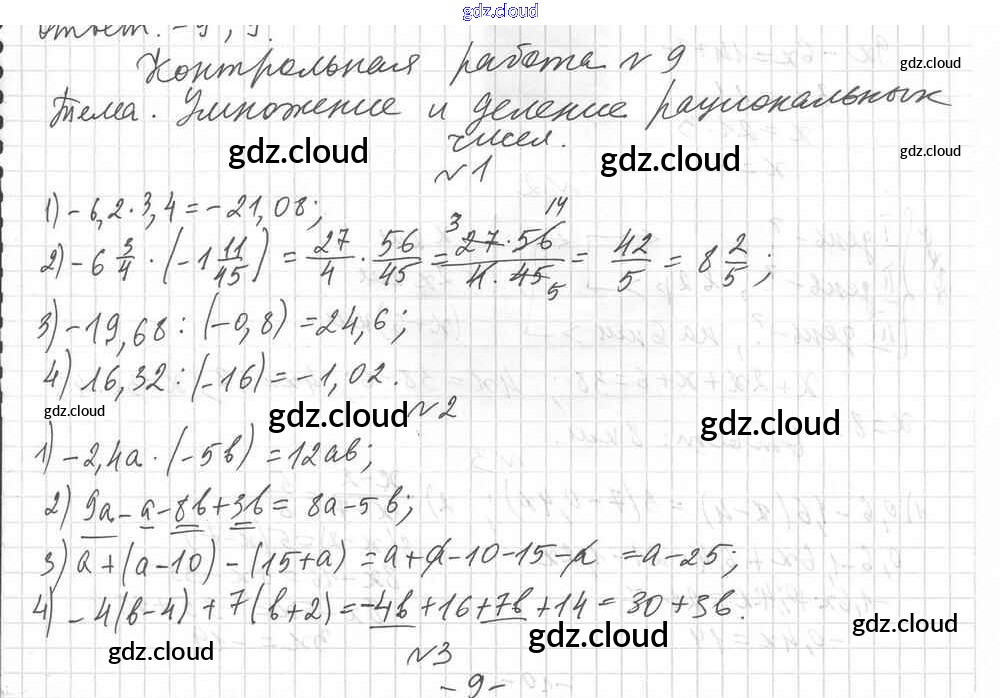 gdz.cloud
ответ. -9; 9.
Контрольная работа №9
gdz.cloud
Тема. Умножение и деление рациональных
чисел.
gdz.cloud gdz.cloud gdz.cloud
№1
1) -6,2·3,4=-21,08;
2) -6 3/4 · (-1 11/45) = 27/4 · 56/45 = 27·56/4·45 = 42/5 = 8 2/5;
3) -19,68 : (-0,8) = 24,6;
4) 16,32 : (-16) = -1,02.
gdz.cloud gdz.cloud №2 gdz.cloud
1) -2,4a · (-5b) = 12ab;
2) 9a-a-8b+3b= 8a-5b;
3) a+(a-10)-(15+a) = a+a-10-15-a = a-25;
4) -4(b-4) + 7(b+2) = -4b+16+7b+14 = 30+3b.
gdz.cloud gdz.cloud gdz.cloud
№3
-9-